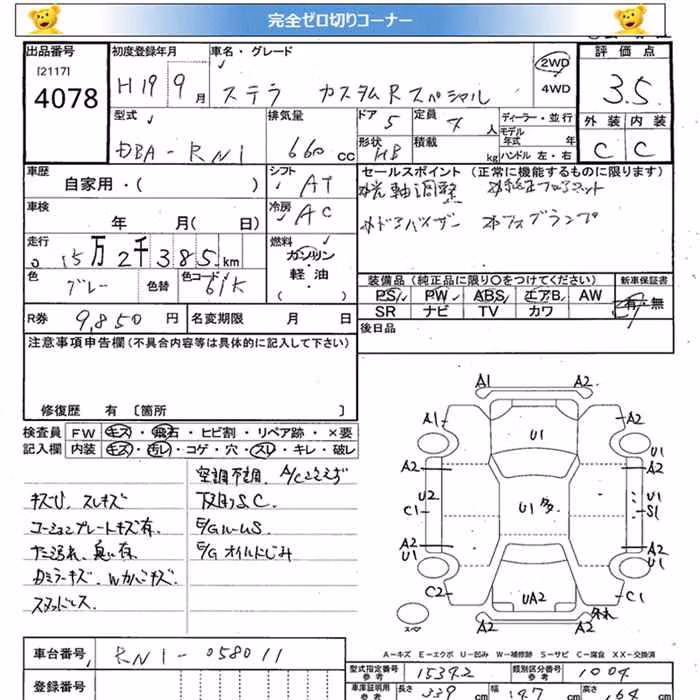 完全ゼロ切りコーナー
出品番号
[2117]
4078
初度登録年月
H19 9月
車名・グレード
ステラ カスタムR スペシャル
2WD
4WD
評価点
3.5
外装 内装
C C
型式
DBA-RN1
排気量
660 cc
ドア
5
定員
4 人
形状
HB
積載
kg
ディーラー・並行
モデル年式 年
ハンドル 左・右
車歴
自家用・( )
シフト
AT
車検
年 月(日)
冷房
AC
走行
15万2千385km
燃料
ガソリン
軽油
( )
色
グレー
色替
色コード
61K
R券 9,850 円
名変期限 月 日
セールスポイント (正常に機能するものに限ります)
光軸調整
ドアバイザー フォグランプ
装備品 (純正品に限り○をつけてください)
新車保証書
PS PW ABS エアB AW
SR ナビ TV カワ
有・無
後日品
注意事項申告欄(不具合内容等は具体的に記入して下さい)
修復歴 有 [箇所 ]
検査員記入欄
FW キズ・飛石・ヒビ割・リペア跡・×要
内装 キズ・汚レ・コゲ・穴・スレ・キレ・破レ
キズU、スレキズ
コーションプレートキズ有、
スタッドレス.
空調不調、
下廻りS.C.
E/GルームS
E/Gオイルにじみ
A1 A2
A1 U1 A2
A2 A2 U1
U2 U1多 U1
C1 S1
A2 A2
U1 U1
C2 UA2 C1
A2
スペア
A-キズ E-エクボ U-凹み W-補修跡 S-サビ C-腐食 XX-交換済
車台番号 RN1-058011
登録番号
型式指定番号 参考 15392
類別区分番号 参考 1004
車庫証明用 参考
長さ 339 cm
幅 147 cm
高さ 164 cm